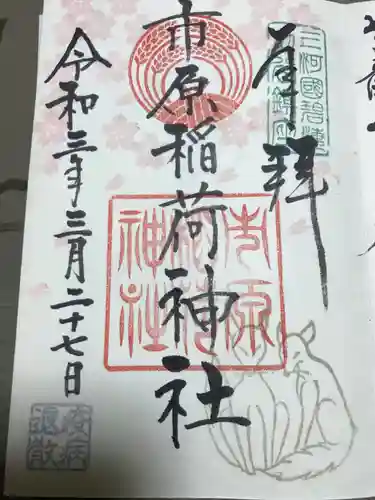 奉拝
三河國碧海
市原稲荷神社
市原稲荷神社
令和三年三月二十七日
疫病退散